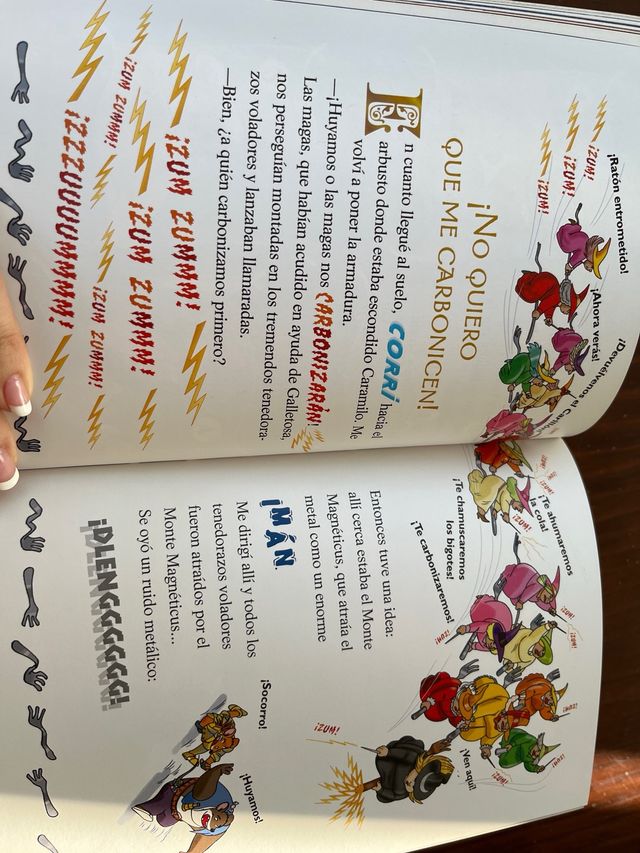 ¡Ratón entrometido!
¡Ahora verás!
¡ZUM!
¡ZUM!
¡ZUM!
¡NO QUIERO
QUE ME CARBONICEN!
En cuanto llegué al suelo, CORRÍ hacia el
arbusto donde estaba escondido Caramilo. Me
volví a poner la armadura.
—¡Huyamos o las magas nos CARBONIZARÁN!
Las magas, que habían acudido en ayuda de Galletosa,
nos perseguían montadas en los tremendos tenedora-
zos voladores y lanzaban llamaradas.
—Bien, ¿a quién carbonizamos primero?
¡ZUM ZUMMM!
¡ZUM ZUMMM!
¡ZUM ZUMMM!
¡ZUM ZUMMM!
¡ZZZUUUUMMMM!
¡Te ahumaremos
la cola!
¡Te chamuscaremos
los bigotes!
¡Te carbonizaremos!
¡ZUM!
¡ZUM!
¡ZUM!
¡ZUM!
¡ZUM!
¡Ven aquí!
¡ZUM!
¡ZUM!
Entonces tuve una idea:
allí cerca estaba el Monte
Magnéticus, que atraía el
metal como un enorme
IMÁN.
Me dirigí allí y todos los
tenedorazos voladores
fueron atraídos por el
Monte Magnéticus...
Se oyó un ruido metálico:
¡DLENGGGGGG!
¡Socorro!
¡Huyamos!